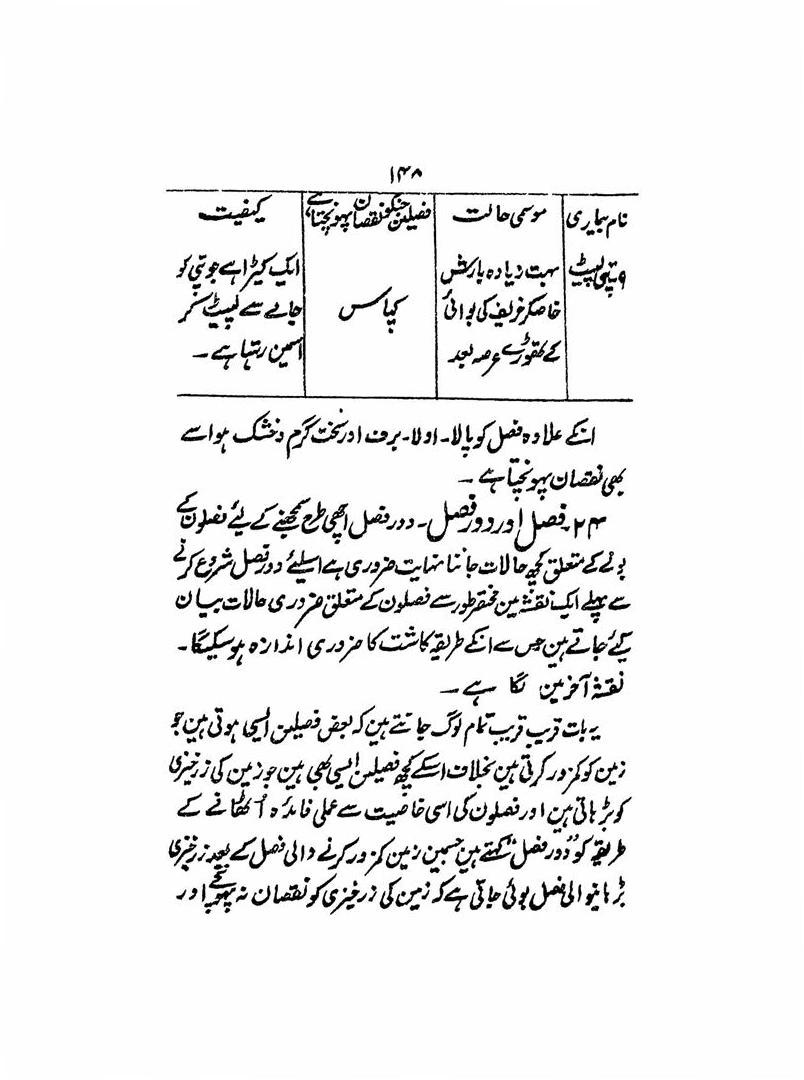 ۱۴۸
نام بیماری
موسمی حالت
فصلین جنکو نقصان پہونچتا ہے
کیفیت
۹ پتی لپیٹ
بہت زیادہ بارش
خاصکر خریف کی بوائی
کے تھوڑے عرصہ بعد
کپاس
ایک کیڑا ہے جو پتی کو
جالے سے لپیٹ کر
اسمین رہتا ہے ۔
انکے علاوہ فصل کو پالا ۔ اولا ۔ برف اور سخت گرم و خشک ہوا سے
بھی نقصان پہونچتا ہے ۔
۲۴ ۔ فصل اور دور فصل ۔ دور فصل اچھی طرح سمجھنے کے لیئے فصلون کے
بونے کے متعلق کچھ حالات جاننا نہایت ضروری ہے اسلیئے دور فصل شروع کرنے
سے پہلے ایک نقشہ مین مختصر طور سے فصلون کے متعلق ضروری حالات بیان
کیئے جاتے ہین جس سے انکے طریقہ کاشت کا ضروری اندازہ ہو سکیگا ۔
نقشہ آخر مین لگا ہے ۔
یہ بات قریب قریب تمام لوگ جانتے ہین کہ بعض فصلین ایسی ہوتی ہین جو
زمین کو کمزور کرتی ہین بخلاف اسکے کچھ فصلین ایسی بھی ہین جو زمین کی زرخیزی
کو بڑہاتی ہین اور فصلون کی اسی خاصیت سے عملی فائدہ اُٹھانے کے
طریقے کو ”دور فصل“ کہتے ہین جسمین زمین کمزور کرنے والی فصل کے بعد زرخیزی
بڑہانیوالی فصل بوئی جاتی ہے کہ زمین کی زرخیزی کو نقصان نہ پہونچے اور